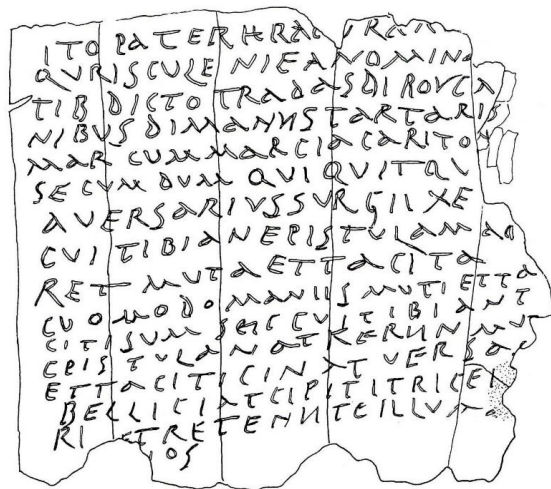 ITO PATER HRAC URAN
QVRISCULENIEANOMINA
TIBDICTOTRADASDIROVCA
NIBVSDIMANIISTARTARIB
MARCUMMARCIACARITON
SECUMDUM QUIQUITQU
AVERSARIVSSURGIIXE
CVITIBIANEPISTULAMAD
RETMUTAETTACITA
CUOMODOMANIISMUTIETTA
CITISUMSEICCUITIBIANT
EPISTULANATKERUNMU
ETTACITICINATUERSAR
BELLICIATCIPITITRICEN
RI ETRETENNTEILLUA
IOS